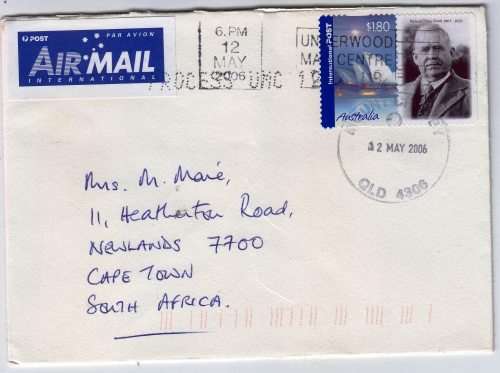 POST
PAR AVION
AIR MAIL
INTERNATIONAL
6. PM
12
MAY
2006
PROCESS UMC 1
UNDERWOOD
MAIL CENTRE
$1.80
International POST
Australia
12 MAY 2006
QLD 4306
Mrs. M. Maré,
11, Heatherton Road,
NEWLANDS 7700
CAPE TOWN
SOUTH AFRICA.